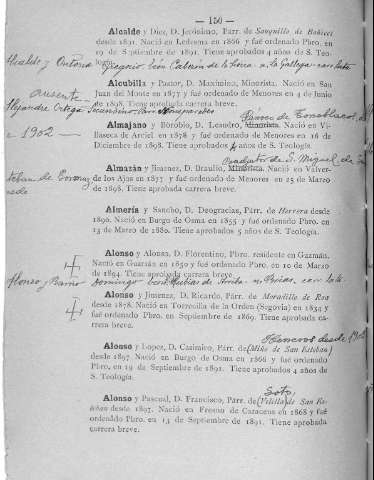 — 150 —
Alcalde y Diez, D. Jerónimo, Párr. de Sauquillo de Boñices
desde 1891. Nació en Ledesma en 1866 y fué ordenado Pbro. en
19 de Septiembre de 1891. Tiene aprobados 4 años de S. Teología.
Alcalde y Antonio Gregorio
Alcubilla y Pastor, D. Maximino, Minorista. Nació en San
Juan del Monte en 1877 y fué ordenado de Menores en 4 de Junio
de 1898. Tiene aprobada carrera breve.
ausente
Alejandre Ortega
en 1902 —
Almajano y Borobio, D. Leandro, Minorista. Nació en Vi-
llaseca de Arciel en 1878 y fué ordenado de Menores en 16 de
Diciembre de 1898. Tiene aprobados 4 años de S. Teología.
Coadjutor de S. Miguel de San
Esteban de Gormaz
Almazán y Jimenez, D. Braulio, Minorista. Nació en Valver-
de los Ajos en 1873 y fué ordenado de Menores en 25 de Marzo
de 1898. Tiene aprobada carrera breve.
Almería y Sancho, D. Deogracias, Párr. de Herrera desde
1890. Nació en Burgo de Osma en 1855 y fué ordenado Pbro. en
13 de Marzo de 1880. Tiene aprobados 5 años de S. Teología.
Alonso y Alonso, D. Florentino, Pbro. residente en Guzmán.
Nació en Guzmán en 1850 y fué ordenado Pbro. en 10 de Marzo
de 1894. Tiene aprobada carrera breve.
Alonso y Domingo
Alonso y Jimenez, D. Ricardo, Párr. de Moradillo de Roa
desde 1878. Nació en Torrecilla de la Orden (Segovia) en 1834 y
fué ordenado Pbro. en Septiembre de 1869. Tiene aprobada ca-
rrera breve.
desde 1902
Alonso y Lopez, D. Casimiro, Párr. de (Miño de San Esteban)
desde 1897. Nació en Burgo de Osma en 1866 y fué ordenado
Pbro. en 19 de Septiembre de 1891. Tiene aprobados 4 años de
S. Teología.
Soto
Alonso y Pascual, D. Francisco, Párr. de (Velilla) de San Es-
teban desde 1897. Nació en Fresno de Caracena en 1868 y fué
ordenado Pbro. en 13 de Septiembre de 1891. Tiene aprobada
carrera breve.